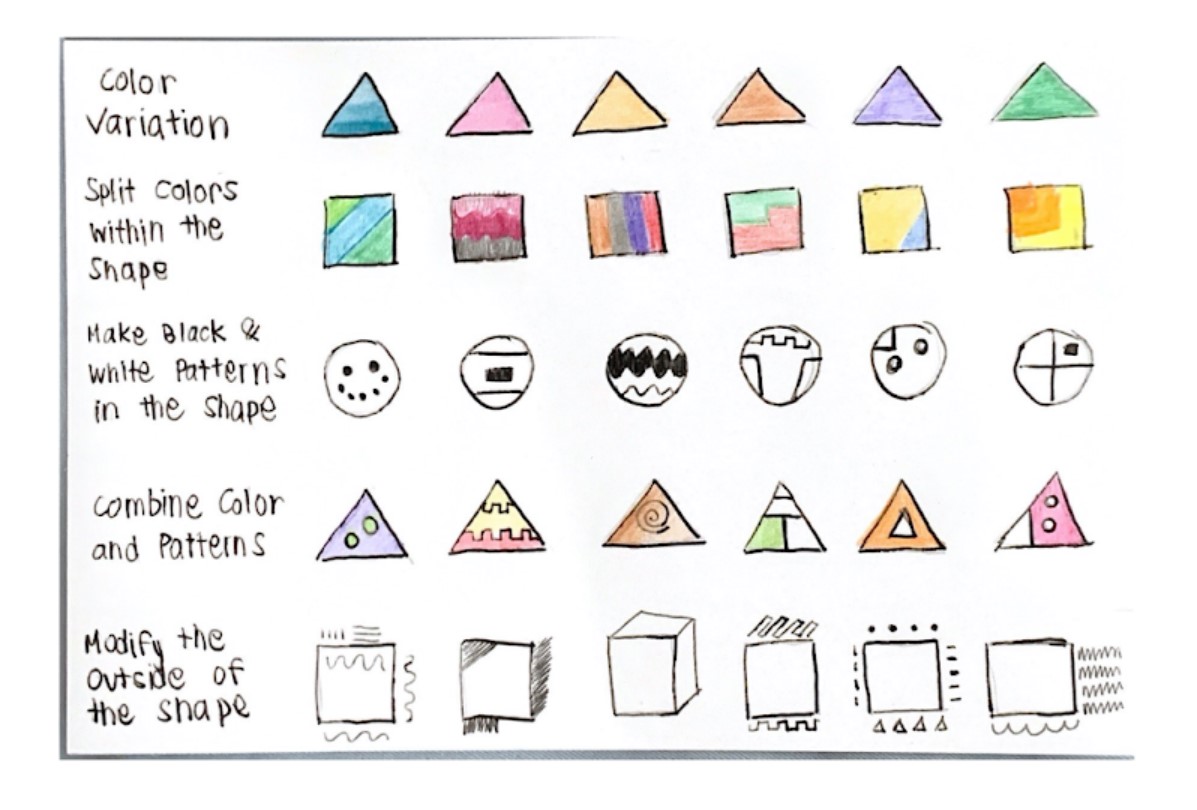 Color
Variation
Split Colors
within the
Shape
Make Black &
white Patterns
in the shape
Combine Color
and Patterns
Modify the
outside of
the shape